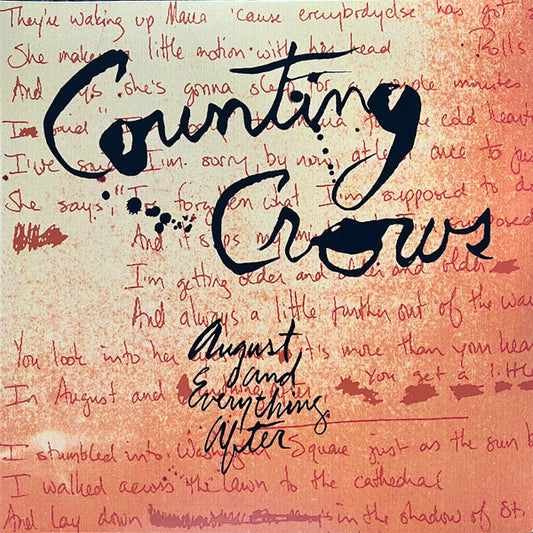 They're waking up Maria 'cause everybody else has got s
She makes a little motion with her head
Rolls
And says she's gonna sleep for a couple minutes
I said "I to Maria for the cold hearte
I've said I'm sorry by now, at least once to jus
She says, "I've forgotten what I'm supposed to do
And it slips my mi supposed
I'm getting older and older and older
And always a little further out of the wa
You look into her it's more than your hea
In August and
You get a little
I stumbled into Washington Square just as the sun b
I walked across the lawn to the cathedral
And lay down in the shadow of St.
Counting
Crows
August
and
Everything
After